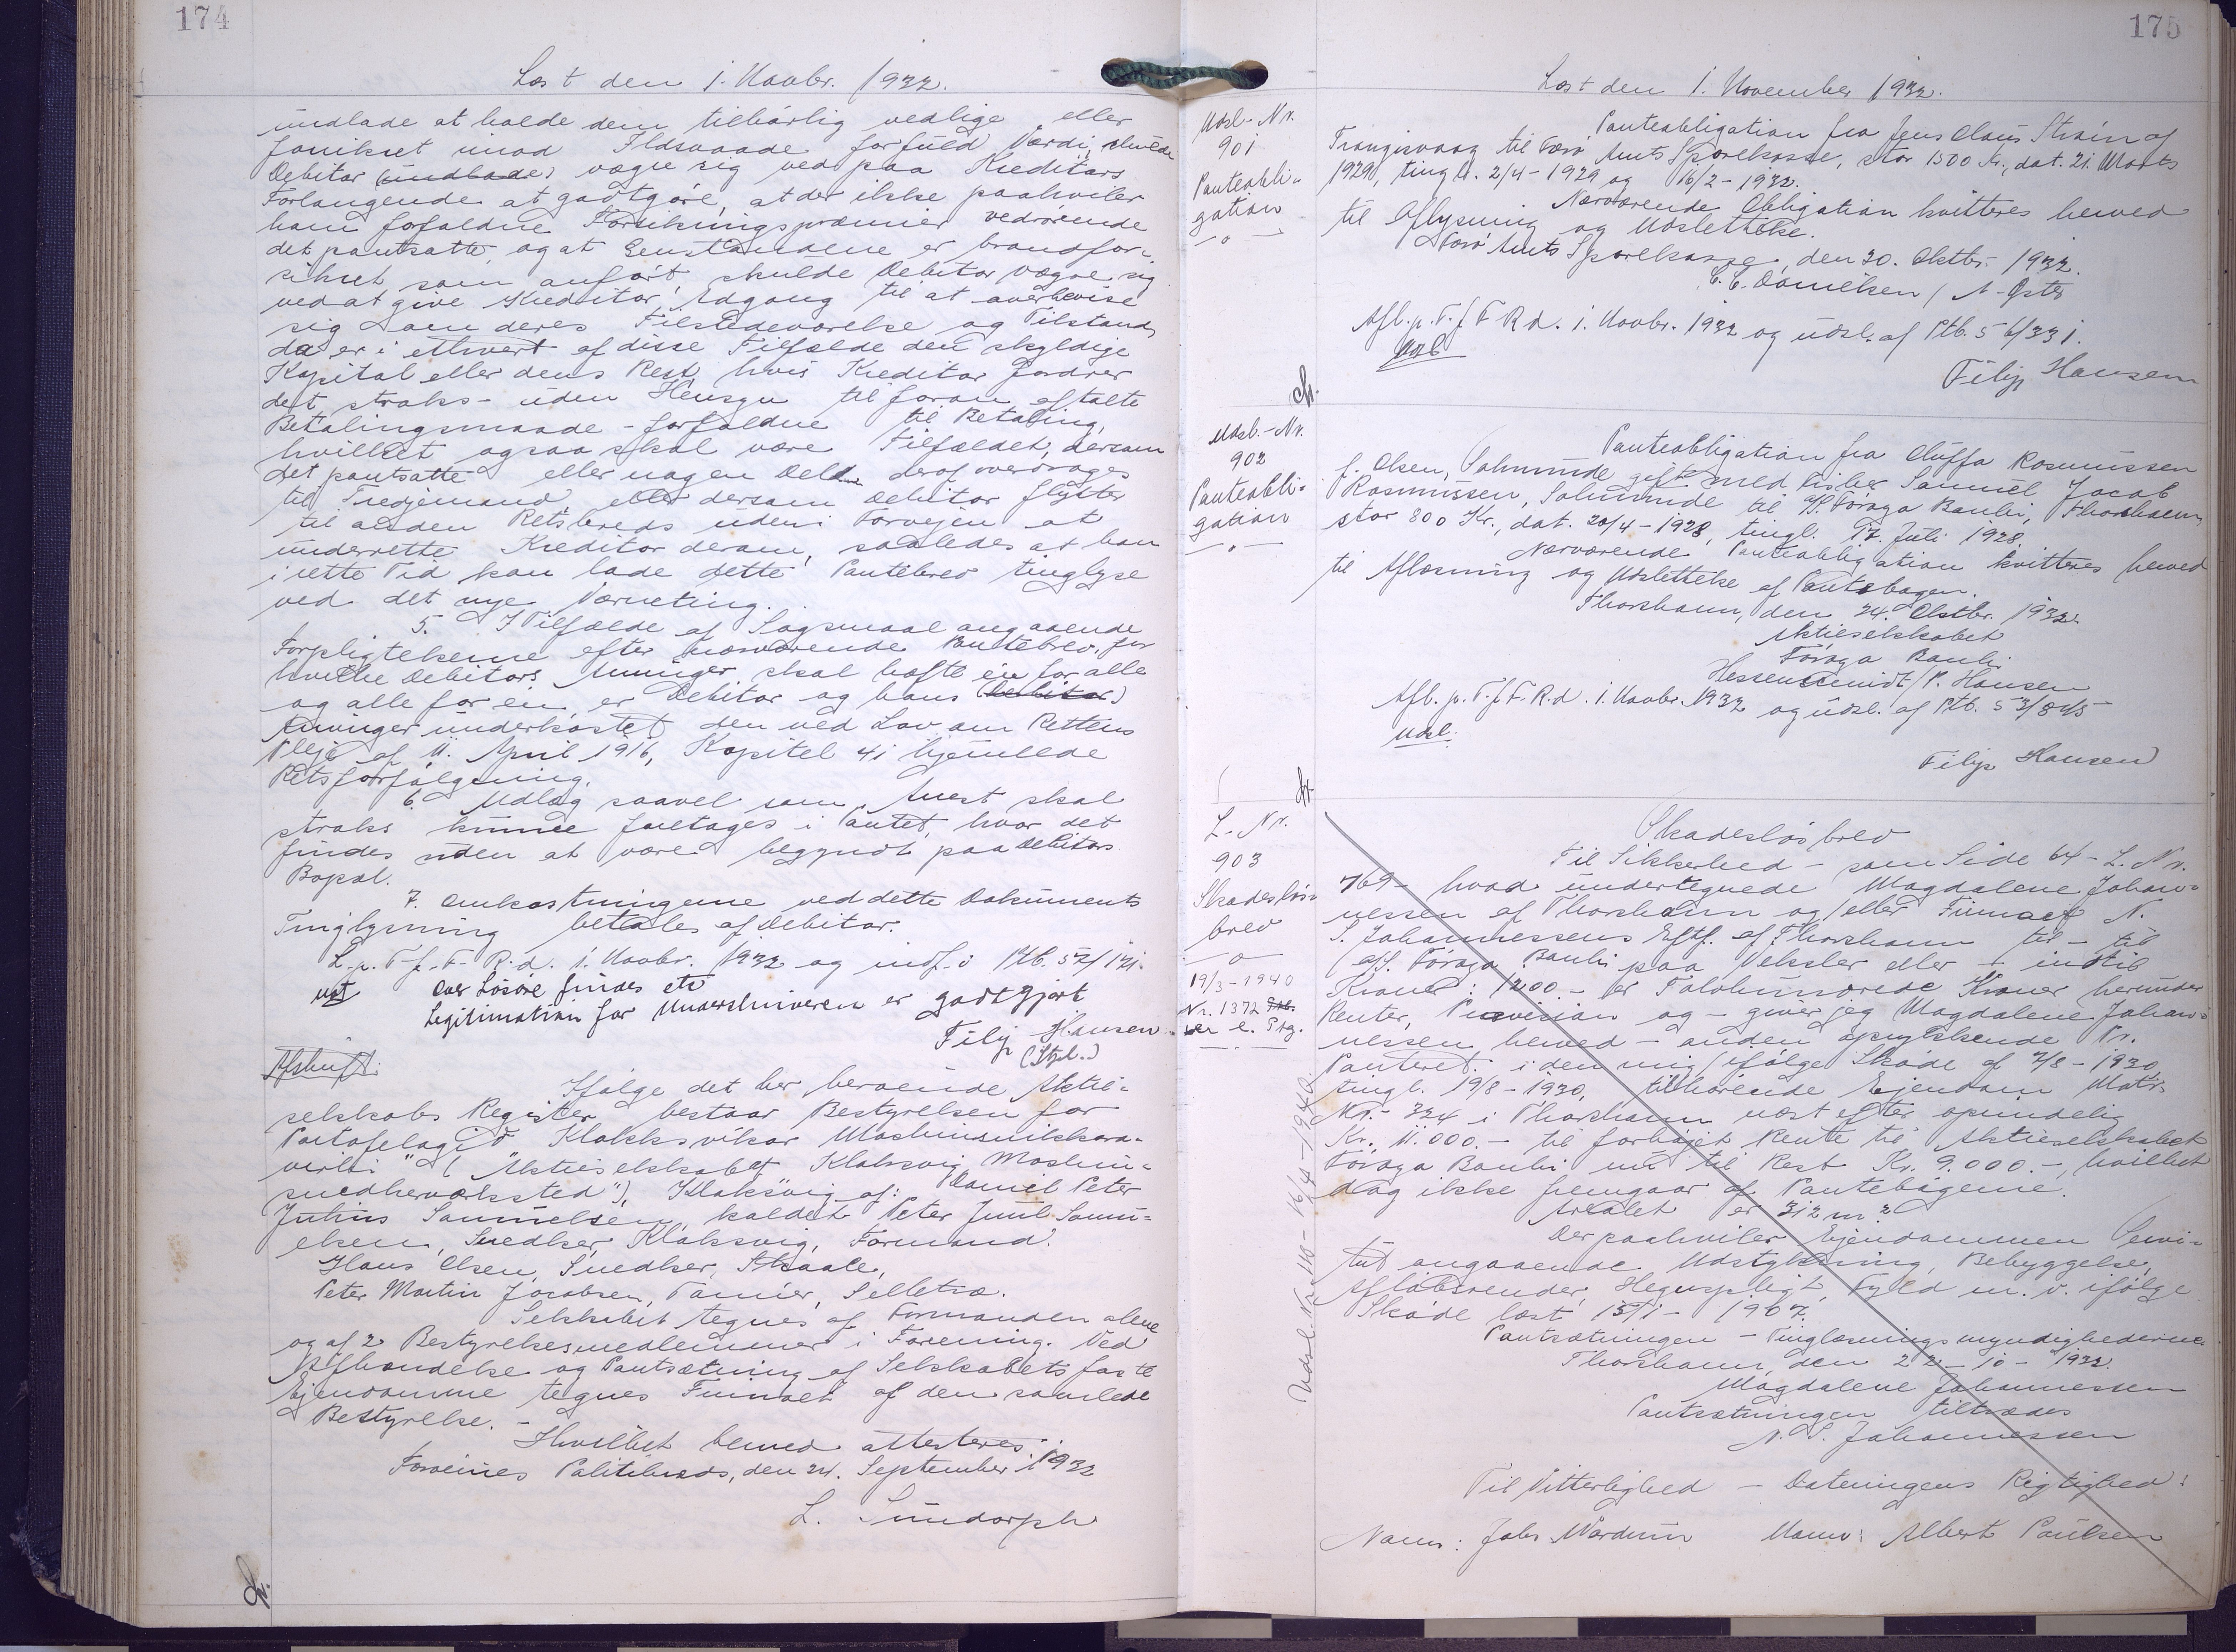 174
Læst den 1. Novbr. 1932.
undlade at holde dem tilbørlig vedlige eller
forsikret imod Ildsvaade for fuld Værdi, skulde
Debitor (undlade) vægre sig ved paa Kreditors
Forlangende at godtgøre, at der ikke paahviler
ham forfaldne Forsikringspræmier vedrørende
det pantsatte, og at Genstandene er brandfor-
sikret som anført, skulde Debitor vægre sig
ved at give Kreditor Adgang til at overbevise
sig om deres Tilstedeværelse og Tilstand,
da er i ethvert af disse Tilfælde den skyldige
Kapital eller dens Rest, hvis Kreditor fordrer
det straks - uden Hensyn til foran aftalte
Betalingsmaade - forfalden til Betaling,
hvilket ogsaa skal være Tilfældet, dersom
det pantsatte eller nogen Del deraf overdrages
til Tredjemand eller dersom Debitor flytter
til anden Retskreds uden i Forvejen at
underrette Kreditor derom, saaledes at han
i rette Tid kan lade dette Pantebrev tinglyse
ved det nye Værneting.
5. I Tilfælde af Søgsmaal angaaende
Forpligtelserne efter nærværende Pantebrev, for
hvilke Debitors Arvinger skal hæfte én for alle
og alle for én, er Debitor og hans (Debitor)
Arvinger underkastet den ved Lov om Rettens
Pleje af 11. April 1916, Kapitel 41 hjemlede
Retsforfølgning.
6. Udlæg saavel som Arrest skal
straks kunne foretages i Pantet, hvor det
findes uden at være begyndt paa Debitors
Bopæl.
7. Omkostningerne ved dette Dokuments
Tinglysning betales af Debitor.
L. p. T. f. F. R. d. 1. Novbr. 1932 og indf. i Ptb. 57/171.
ust Over Løsøre findes ctr
Legitimation for Underskriveren er godtgjort
Filip Hansen
(Stpl.)
Afskrift:
Ifølge det her beroende Aktie-
selskabs Register bestaar Bestyrelsen for
Partafelagið Klakksvíkar Maskinsmiðkara-
virki" ("Aktieselskabet Klaksvig Maskin-
snedkerværksted"), Klaksvig af: Daniel Peter
Julius Samuelsen, kaldet Peter Juul Samu-
elsen, Snedker, Klaksvig, Formand.
Hans Olsen, Snedker, Skaale,
Peter Martin Jacobsen, Tømrer, Selletræ.
Selskabet tegnes af Formanden alene
og af 2 Bestyrelsesmedlemmer i Forening. Ved
Afhændelse og Pantsætning af Selskabets faste
Ejendomme tegnes Firmaet af den samlede
Bestyrelse. -
Hvilket herved attesteres.
Færøernes Politikreds, den 24. September 1932
L. Sundorph
175
Læst den 1. November 1932.
Udsl.-Nr.
901
Panteobli-
gation
Panteobligation fra Jens Claus Strøm af
Trangisvaag til Færø Amts Sparekasse, stor 1500 Kr., dat. 21 Marts
1929, tingl. 2/4 - 1929 og 16/2 - 1932.
Nærværende Obligation kvitteres herved
til Aflysning og Udslettelse.
Færø Amts Sparekasse, den 20. Oktbr. 1932.
C. C. Danielsen / A. Øster
Afl. p. T. f. F. R. d. 1. Novbr. 1932 og udsl. af Ptb. 56/331.
Udsl
Filip Hansen
Udsl.-Nr.
902
Panteobli-
gation
Panteobligation fra Oluffa Rasmussen
f. Olsen, Salmunde gift med Fisker Samuel Jacob
Rasmussen, Salmunde til A/S. Føroya Banki, Thorshavn,
stor 800 Kr., dat. 20/4 - 1928, tingl. 17. Juli 1928.
Nærværende Panteobligation kvitteres herved
til Aflæsning og Udslettelse af Pantebogen.
Thorshavn, den 24. Oktbr. 1932.
Aktieselskabet
Føroya Banki
Hessenschmidt / P. Hansen
Afl. p. T. f. F. R. d. 1. Novbr. 1932 og udsl. af Ptb. 53/845
Udsl.
Filip Hansen
L.-Nr.
903
Skadesløs-
brev
19/3-1940
Nr. 1372
Skadesløsbrev
Til Sikkerhed - som Side 64 - L. Nr.
769 - hvad undertegnede Magdalene Johan-
nessen af Thorshavn og/eller Firmaet N.
S. Johannessens Eftf. af Thorshavn til - til
A/S. Føroya Banki paa Veksler eller - indtil
Kroner: 1200 - er Tolvhundrede Kroner herunder
Renter, Provision og - giver jeg Magdalene Johan-
nessen herved - anden oprykkende Pr.
Panteret i den mig ifølge Skøde af 7/8 - 1930,
tingl. 19/8 - 1930, tilhørende Ejendom Matr.
Nr. 324 i Thorshavn næst efter oprindelig
Kr. 11.000.- til forhøjet Rente til Aktieselskabet
Føroya Banki nu til Rest Kr. 9.000.-, hvilket
dog ikke fremgaar af Pantebøgerne.
Arealet er 312 m².
Der paahviler Ejendommen Servi-
tut angaaende Udstykning, Bebyggelse,
Afløbsrender, Hegnspligt, Fyld m. v. ifølge
Skøde læst 15/1 - 1907.
Pantsætningen - Tinglæsningsmyndighederne.
Thorshavn, den 22 - 10 - 1932.
Magdalene Johannessen
Pantsætningen tiltrædes
N. S. Johannessen
Til Vitterlighed - Dateringens Rigtighed:
Navn: Johs Wardum Navn: Albert Poulsen